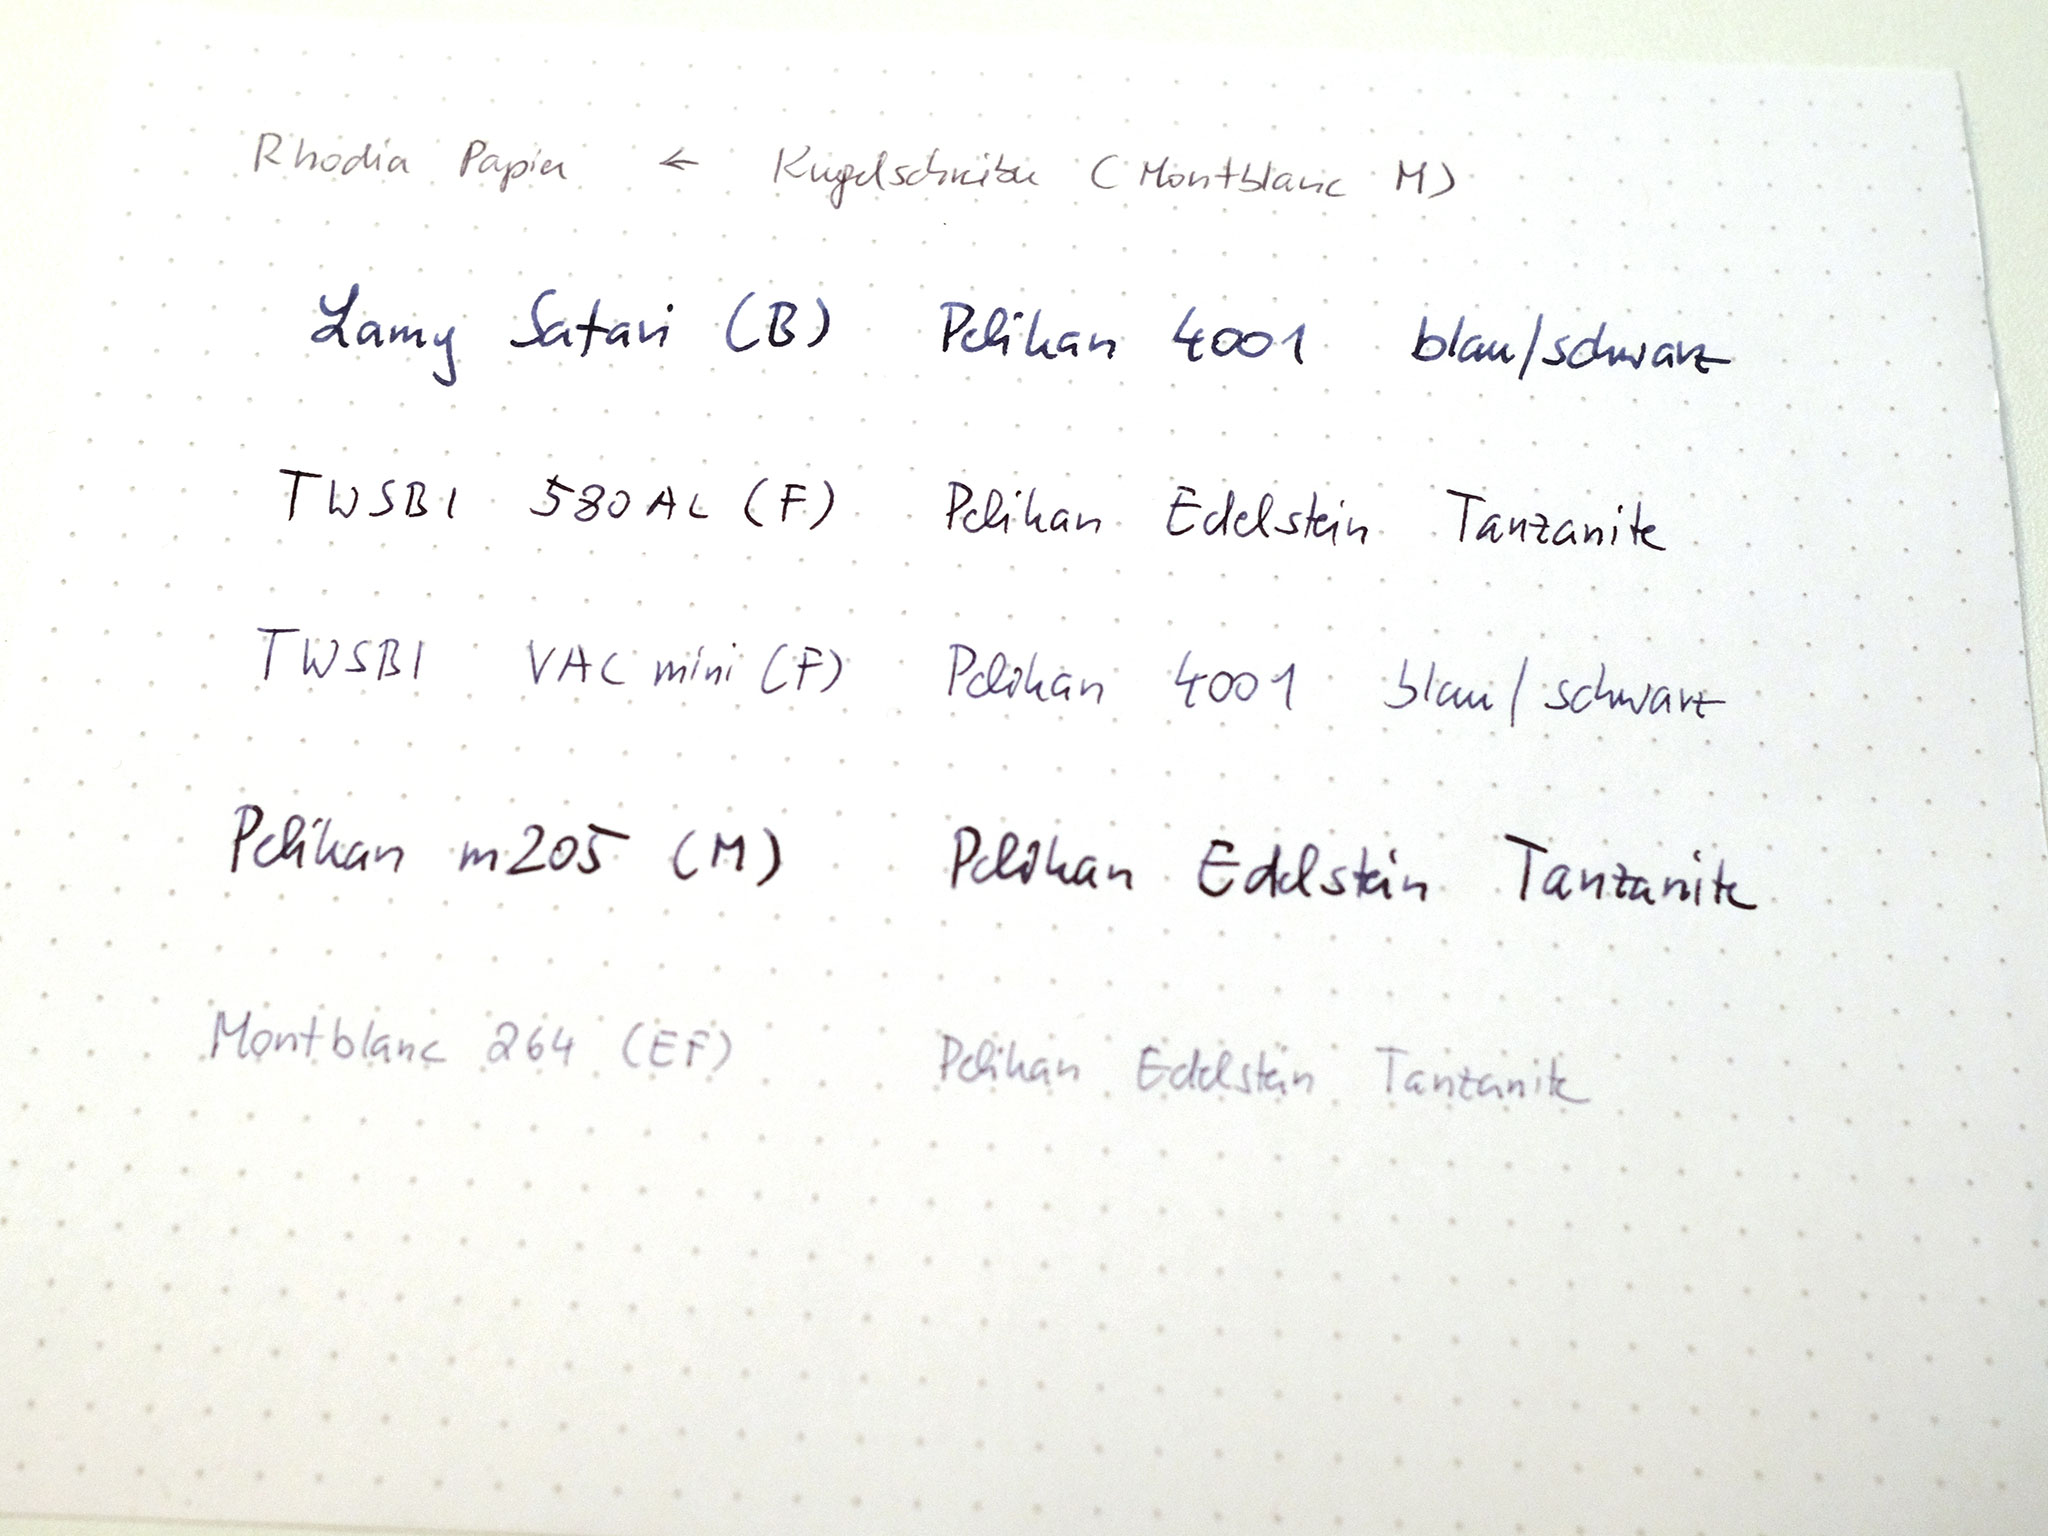 Rhodia Papier ← Kugelschreiber (Montblanc M)
Lamy Safari (B) Pelikan 4001 blau/schwarz
TWSBI 580AL (F) Pelikan Edelstein Tanzanite
TWSBI VAC mini (F) Pelikan 4001 blau/schwarz
Pelikan m205 (M) Pelikan Edelstein Tanzanite
Montblanc 264 (EF) Pelikan Edelstein Tanzanite